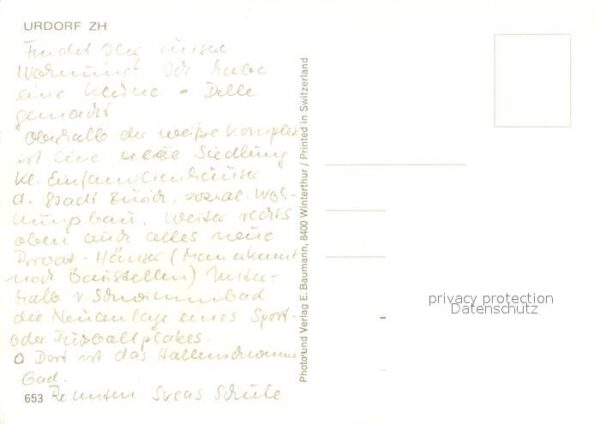 URDORF ZH
Findet Ihr unsere
Wohnung? Ich habe
eine kleine - Delle
gemacht
Oberhalb der weisse Komplex
ist eine neue Siedlung
kl. Einfamilienhäuser
d. Stadt Zürich, sozial. Woh-
nungsbau. Weiter rechts
oben auch alles neue
Privat-Häuser (Man erkennt
noch Baustellen) Unter-
halb v Schwimmbad
die Neuanlage eines Sport-
oder Fussballplatzes.
O Dort ist das Hallenschwimm
bad.
653
Photo und Verlag E. Baumann, 8400 Winterthur / Printed in Switzerland
privacy protection
Datenschutz